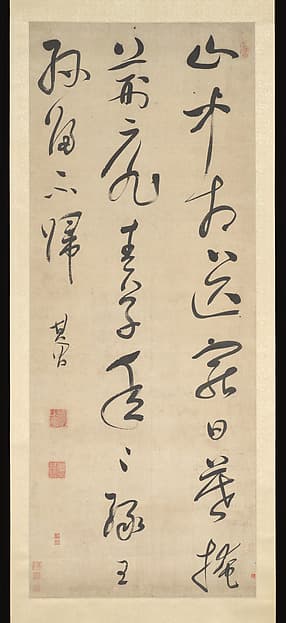 山中相送罷日暮掩
荊扉春草年〻綠王
孫不歸
其昌